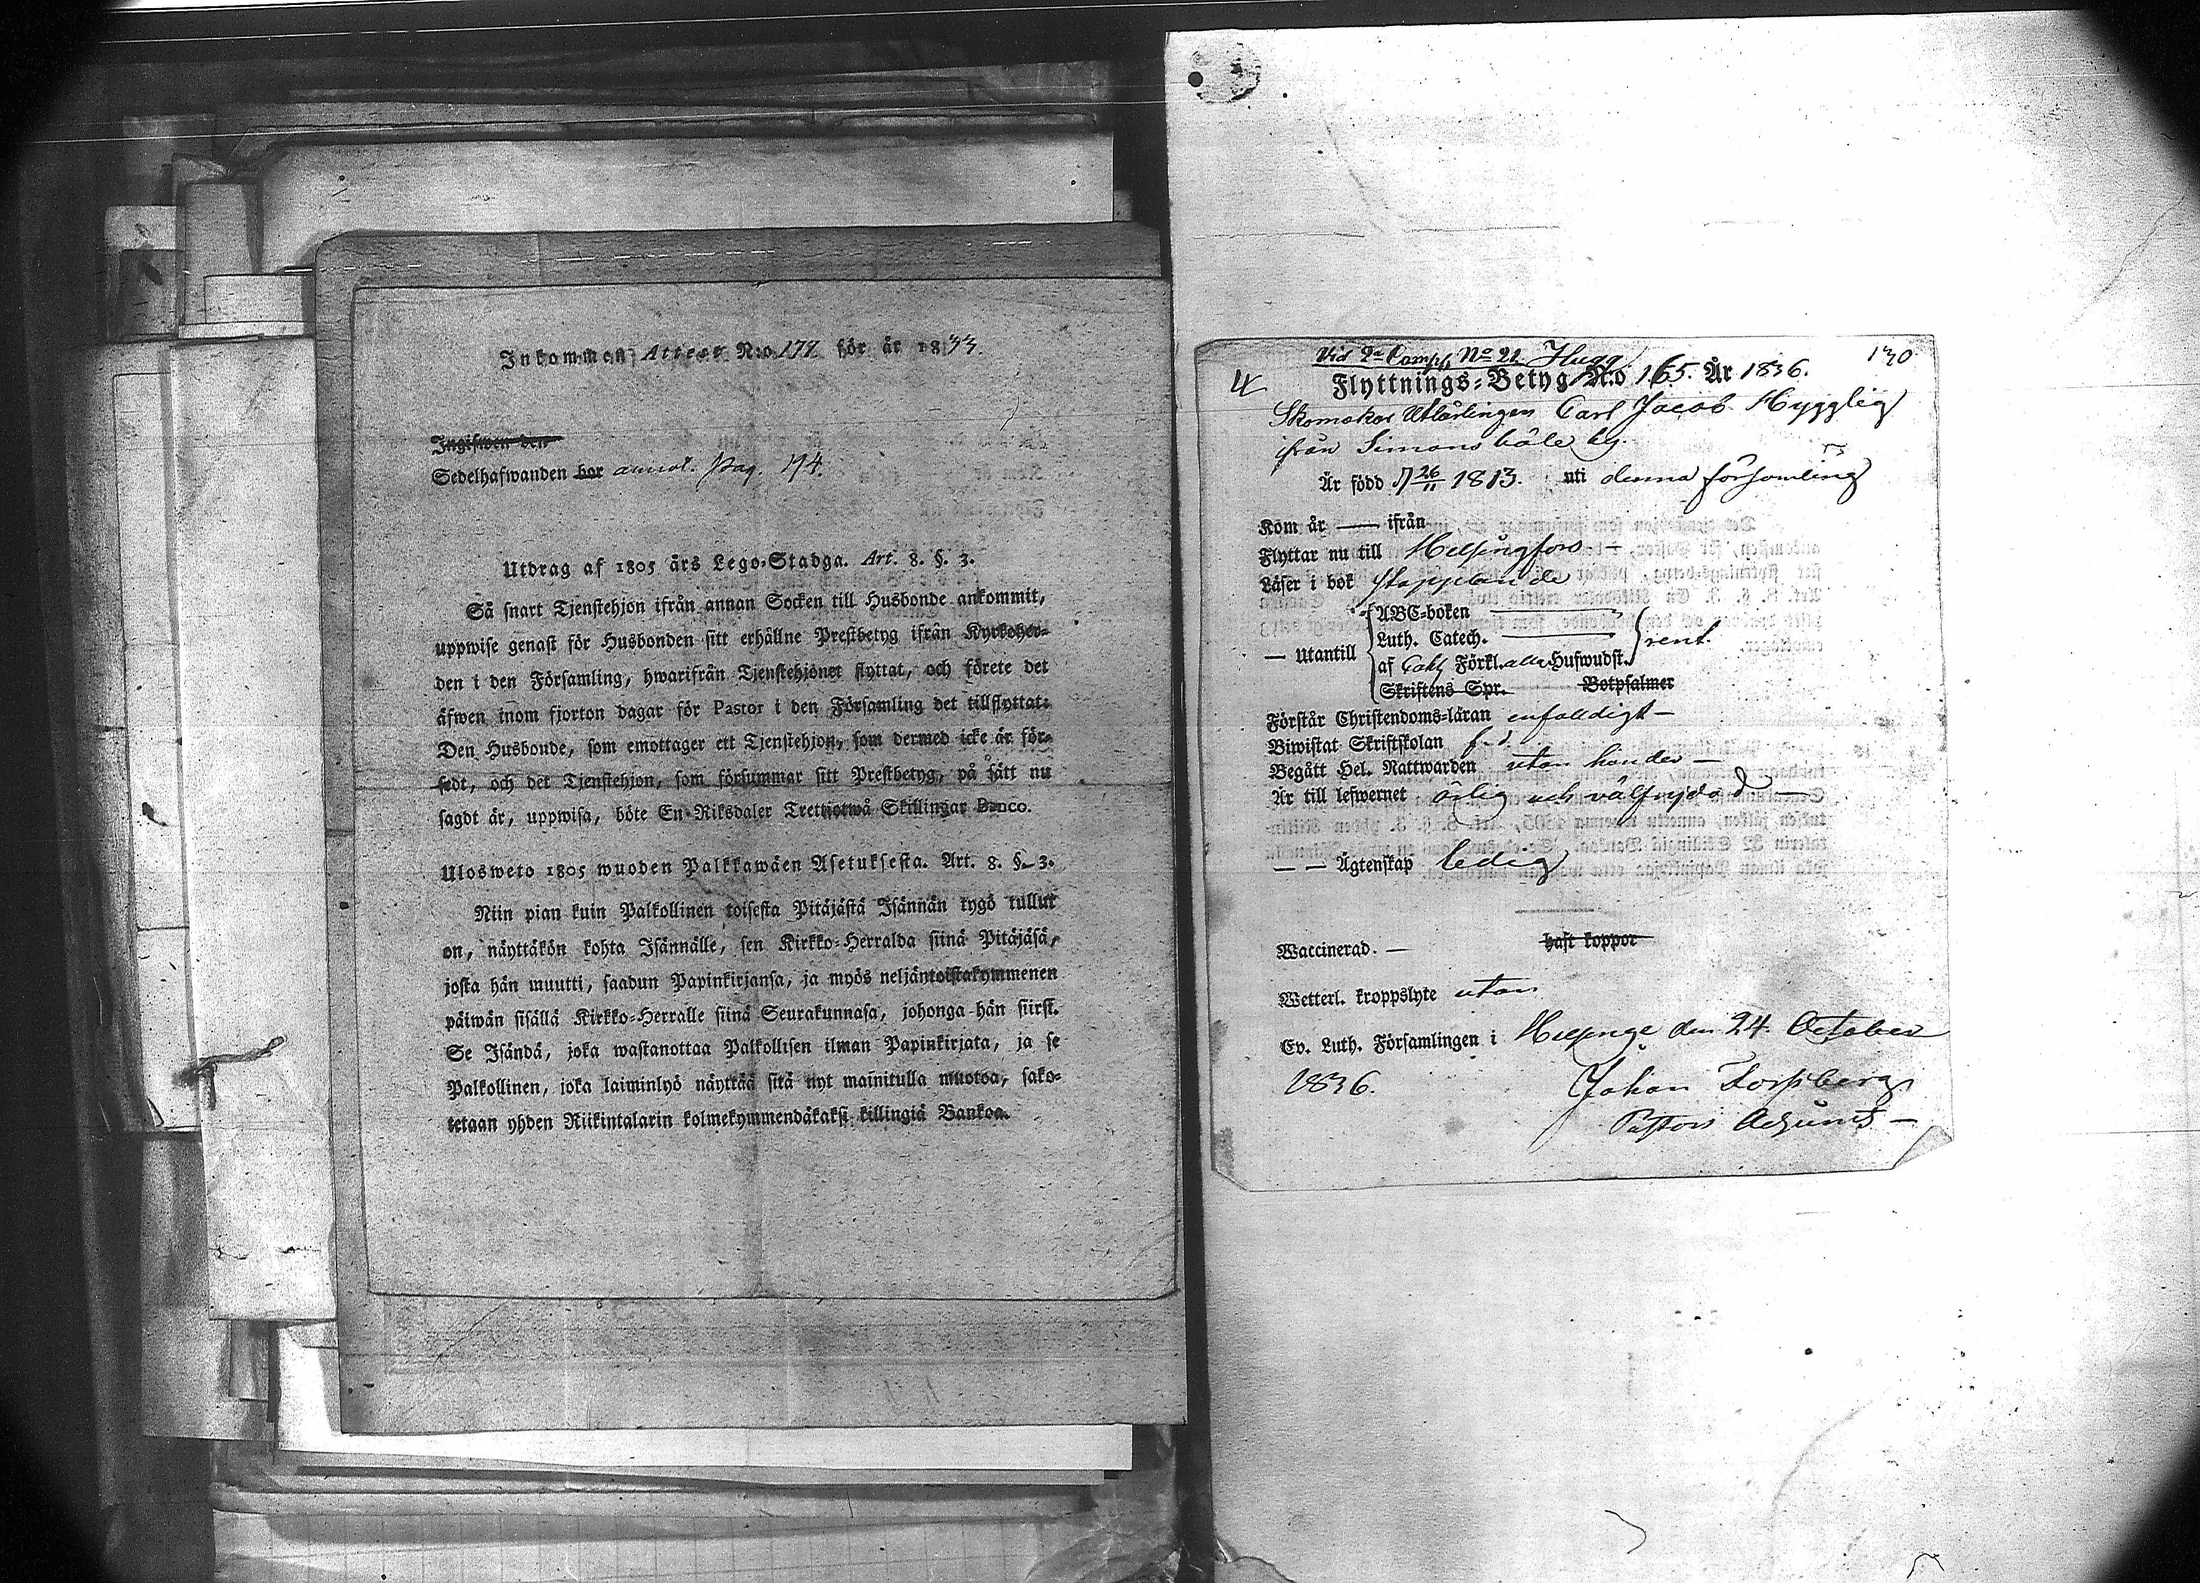 Inkommen Attest N:o 177 för år 1833.
Ingifwen den
Sedelhafwanden bor annot. pag. 194.
Utdrag af 1805 års Lego-Stadga. Art. 8. §. 3.
Så snart Tjenstehjon ifrån annan Socken till Husbonde ankommit,
uppwise genast för Husbonden sitt erhållne Prestbetyg ifrån Kyrkoher-
den i den Församling, hwarifrån Tjenstehjonet flyttat, och förete det
äfwen inom fjorton dagar för Pastor i den Församling det tillflyttat:
Den Husbonde, som emottager ett Tjenstehjon, som dermed icke är för-
sedt, och det Tjenstehjon, som försummar sitt Prestbetyg, på sätt nu
sagdt är, uppwisa, böte En Riksdaler Trettiotwå Skillingar Banco.
Ulosweto 1805 wuoden Palkkawäen Asetuksesta. Art. 8. §. 3.
Niin pian kuin Palkollinen toisesta Pitäjästä Isännän tygö tullut
on, näyttäkön kohta Isännälle, sen Kirkko-Herralda siinä Pitäjäsä,
josta hän muutti, saadun Papinkirjansa, ja myös neljäntoistakymmenen
päiwän sisällä Kirkko-Herralle siinä Seurakunnasa, johonga hän siirst.
Se Isändä, joka wastanottaa Palkollisen ilman Papinkirjata, ja se
Palkollinen, joka laiminlyö näyttää sitä nyt mainitulla muotoa, sako-
tetaan yhden Riikintalarin kolmekymmendäkaksi killingiä Bankoa.
Vid 2a Comp. No 21 Hugg
130
4
Flyttnings-Betyg N:o 165. År 1836.
Skomakar Utlärlingen Carl Jacob Hygglig
ifrån Simons böle by.
Är född d 26/11 1813. uti denna församling
Kom år — ifrån
Flyttar nu till Helsingfors —
Läser i bok stapplande
— Utantill
ABC-boken
Luth. Catech.
af Förkl. alla Hufwudst.
rent.
Skriftens Spr. Botpsalmer
Förstår Christendoms-läran enfaldigt —
Biwistat Skriftskolan
Begått Hel. Nattwarden utan hinder —
Är till lefwernet ärlig och välfrejdad —
— — Ägtenskap ledig
Waccinerad. — haft koppor
Wetterl. kroppslyte utan
Ev. Luth. Församlingen i Helsinge den 24. October
1836. Johan Forssberg
Pastors Adjunct —